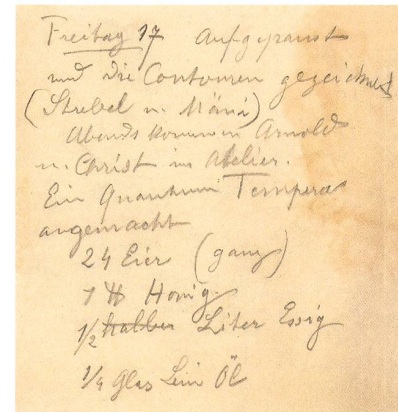 Freitag 17 Aufgepaust
und die Contouren gezeichnet
(Strebel u. Mäni)
Abends kommen Arnold
u. Christ ins Atelier.
Ein Quantum Tempera
angemacht
24 Eier (ganz)
1 ℔ Honig
1/2 halber Liter Essig
1/4 Glas Lein Öl